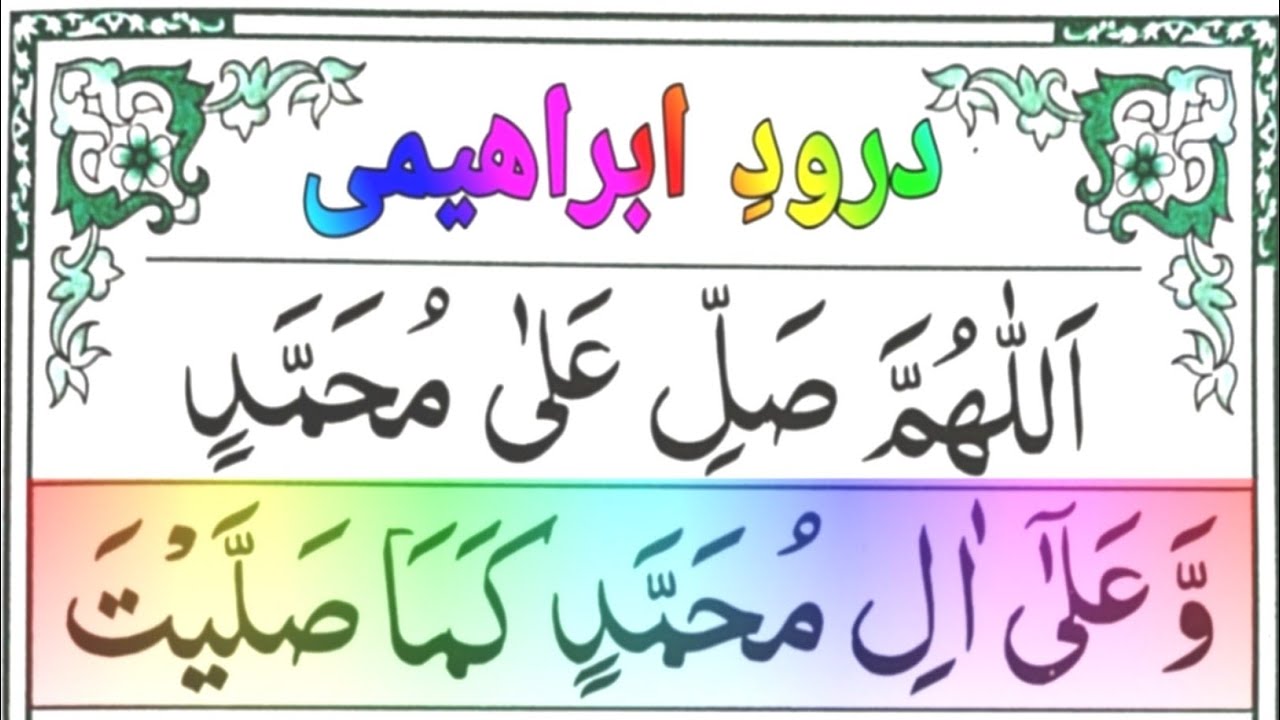 درودِ ابراهیمی
اَللّٰهُمَّ صَلِّ عَلٰى مُحَمَّدٍ
وَّ عَلٰٓى اٰلِ مُحَمَّدٍ كَمَا صَلَّيْتَ